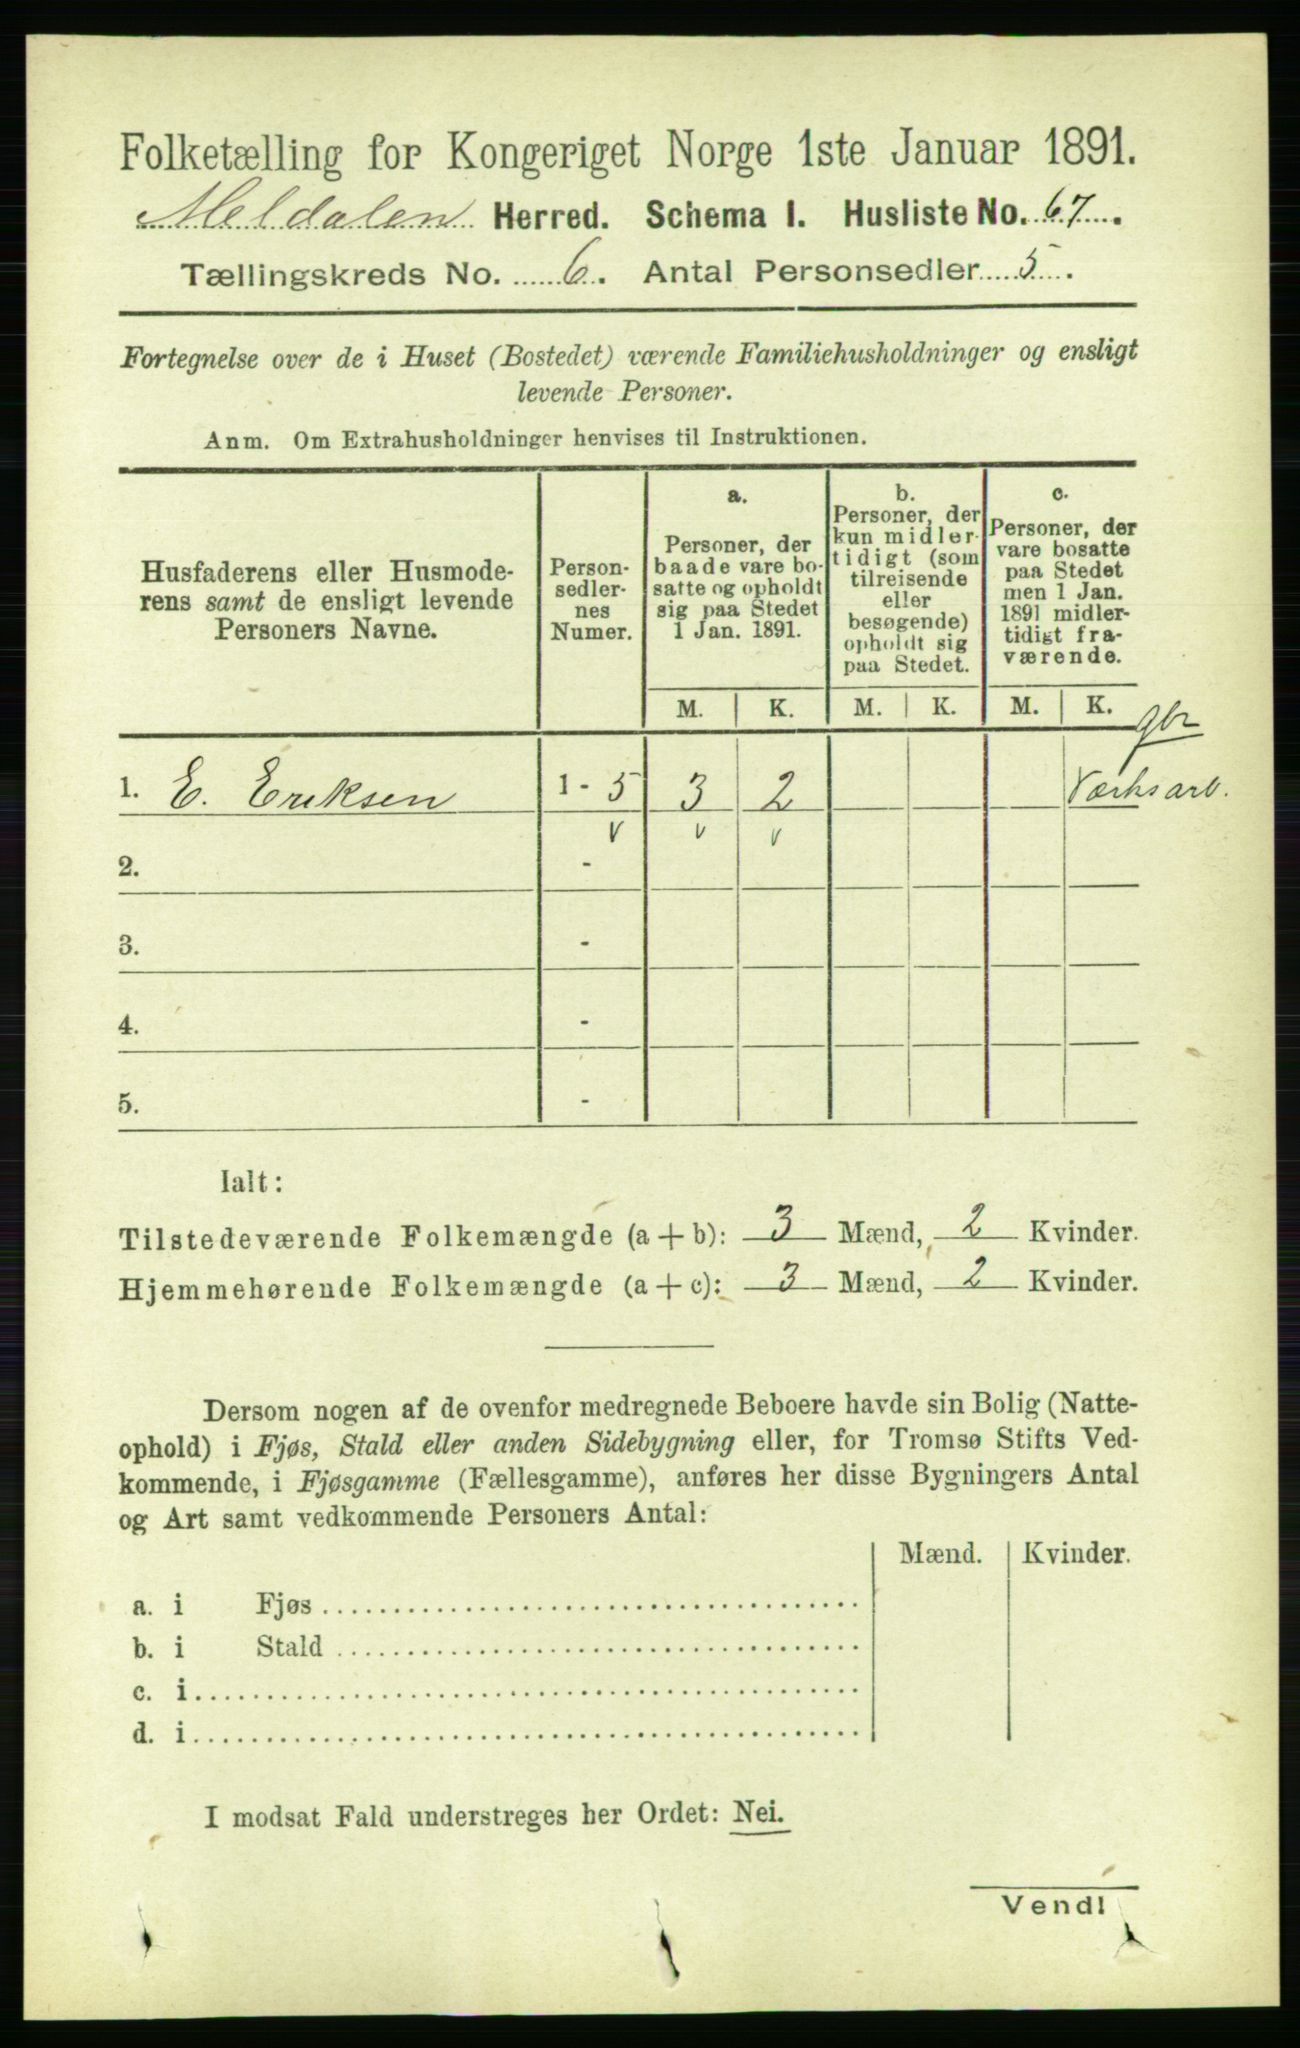 Folketælling for Kongeriget Norge 1ste Januar 1891.
Meldalen Herred. Schema I. Husliste No. 67.
Tællingskreds No. 6. Antal Personsedler 5.
Fortegnelse over de i Huset (Bostedet) værende Familiehusholdninger og ensligt
levende Personer.
Anm. Om Extrahusholdninger henvises til Instruktionen.
Husfaderens eller Husmode-
rens samt de ensligt levende
Personers Navne.
Person-
sedler-
nes
Numer.
a.
Personer, der
baade vare bo-
satte og opholdt
sig paa Stedet
1 Jan. 1891.
b.
Personer, der
kun midler-
tidigt (som
tilreisende
eller
besøgende)
opholdt sig
paa Stedet.
c.
Personer, der
vare bosatte
paa Stedet
men 1 Jan.
1891 midler-
tidigt fra-
værende.
M. K. M. K. M. K.
gbr
1. E. Eriksen 1 - 5 3 2 Værksarb.
v v v
2. -
3. -
4. -
5. -
Ialt:
Tilstedeværende Folkemængde (a + b): 3 Mænd, 2 Kvinder.
Hjemmehørende Folkemængde (a + c): 3 Mænd, 2 Kvinder.
Dersom nogen af de ovenfor medregnede Beboere havde sin Bolig (Natte-
ophold) i Fjøs, Stald eller anden Sidebygning eller, for Tromsø Stifts Ved-
kommende, i Fjøsgamme (Fællesgamme), anføres her disse Bygningers Antal
og Art samt vedkommende Personers Antal:
Mænd. Kvinder.
a. i Fjøs
b. i Stald
c. i
d. i
I modsat Fald understreges her Ordet: Nei.
Vend!